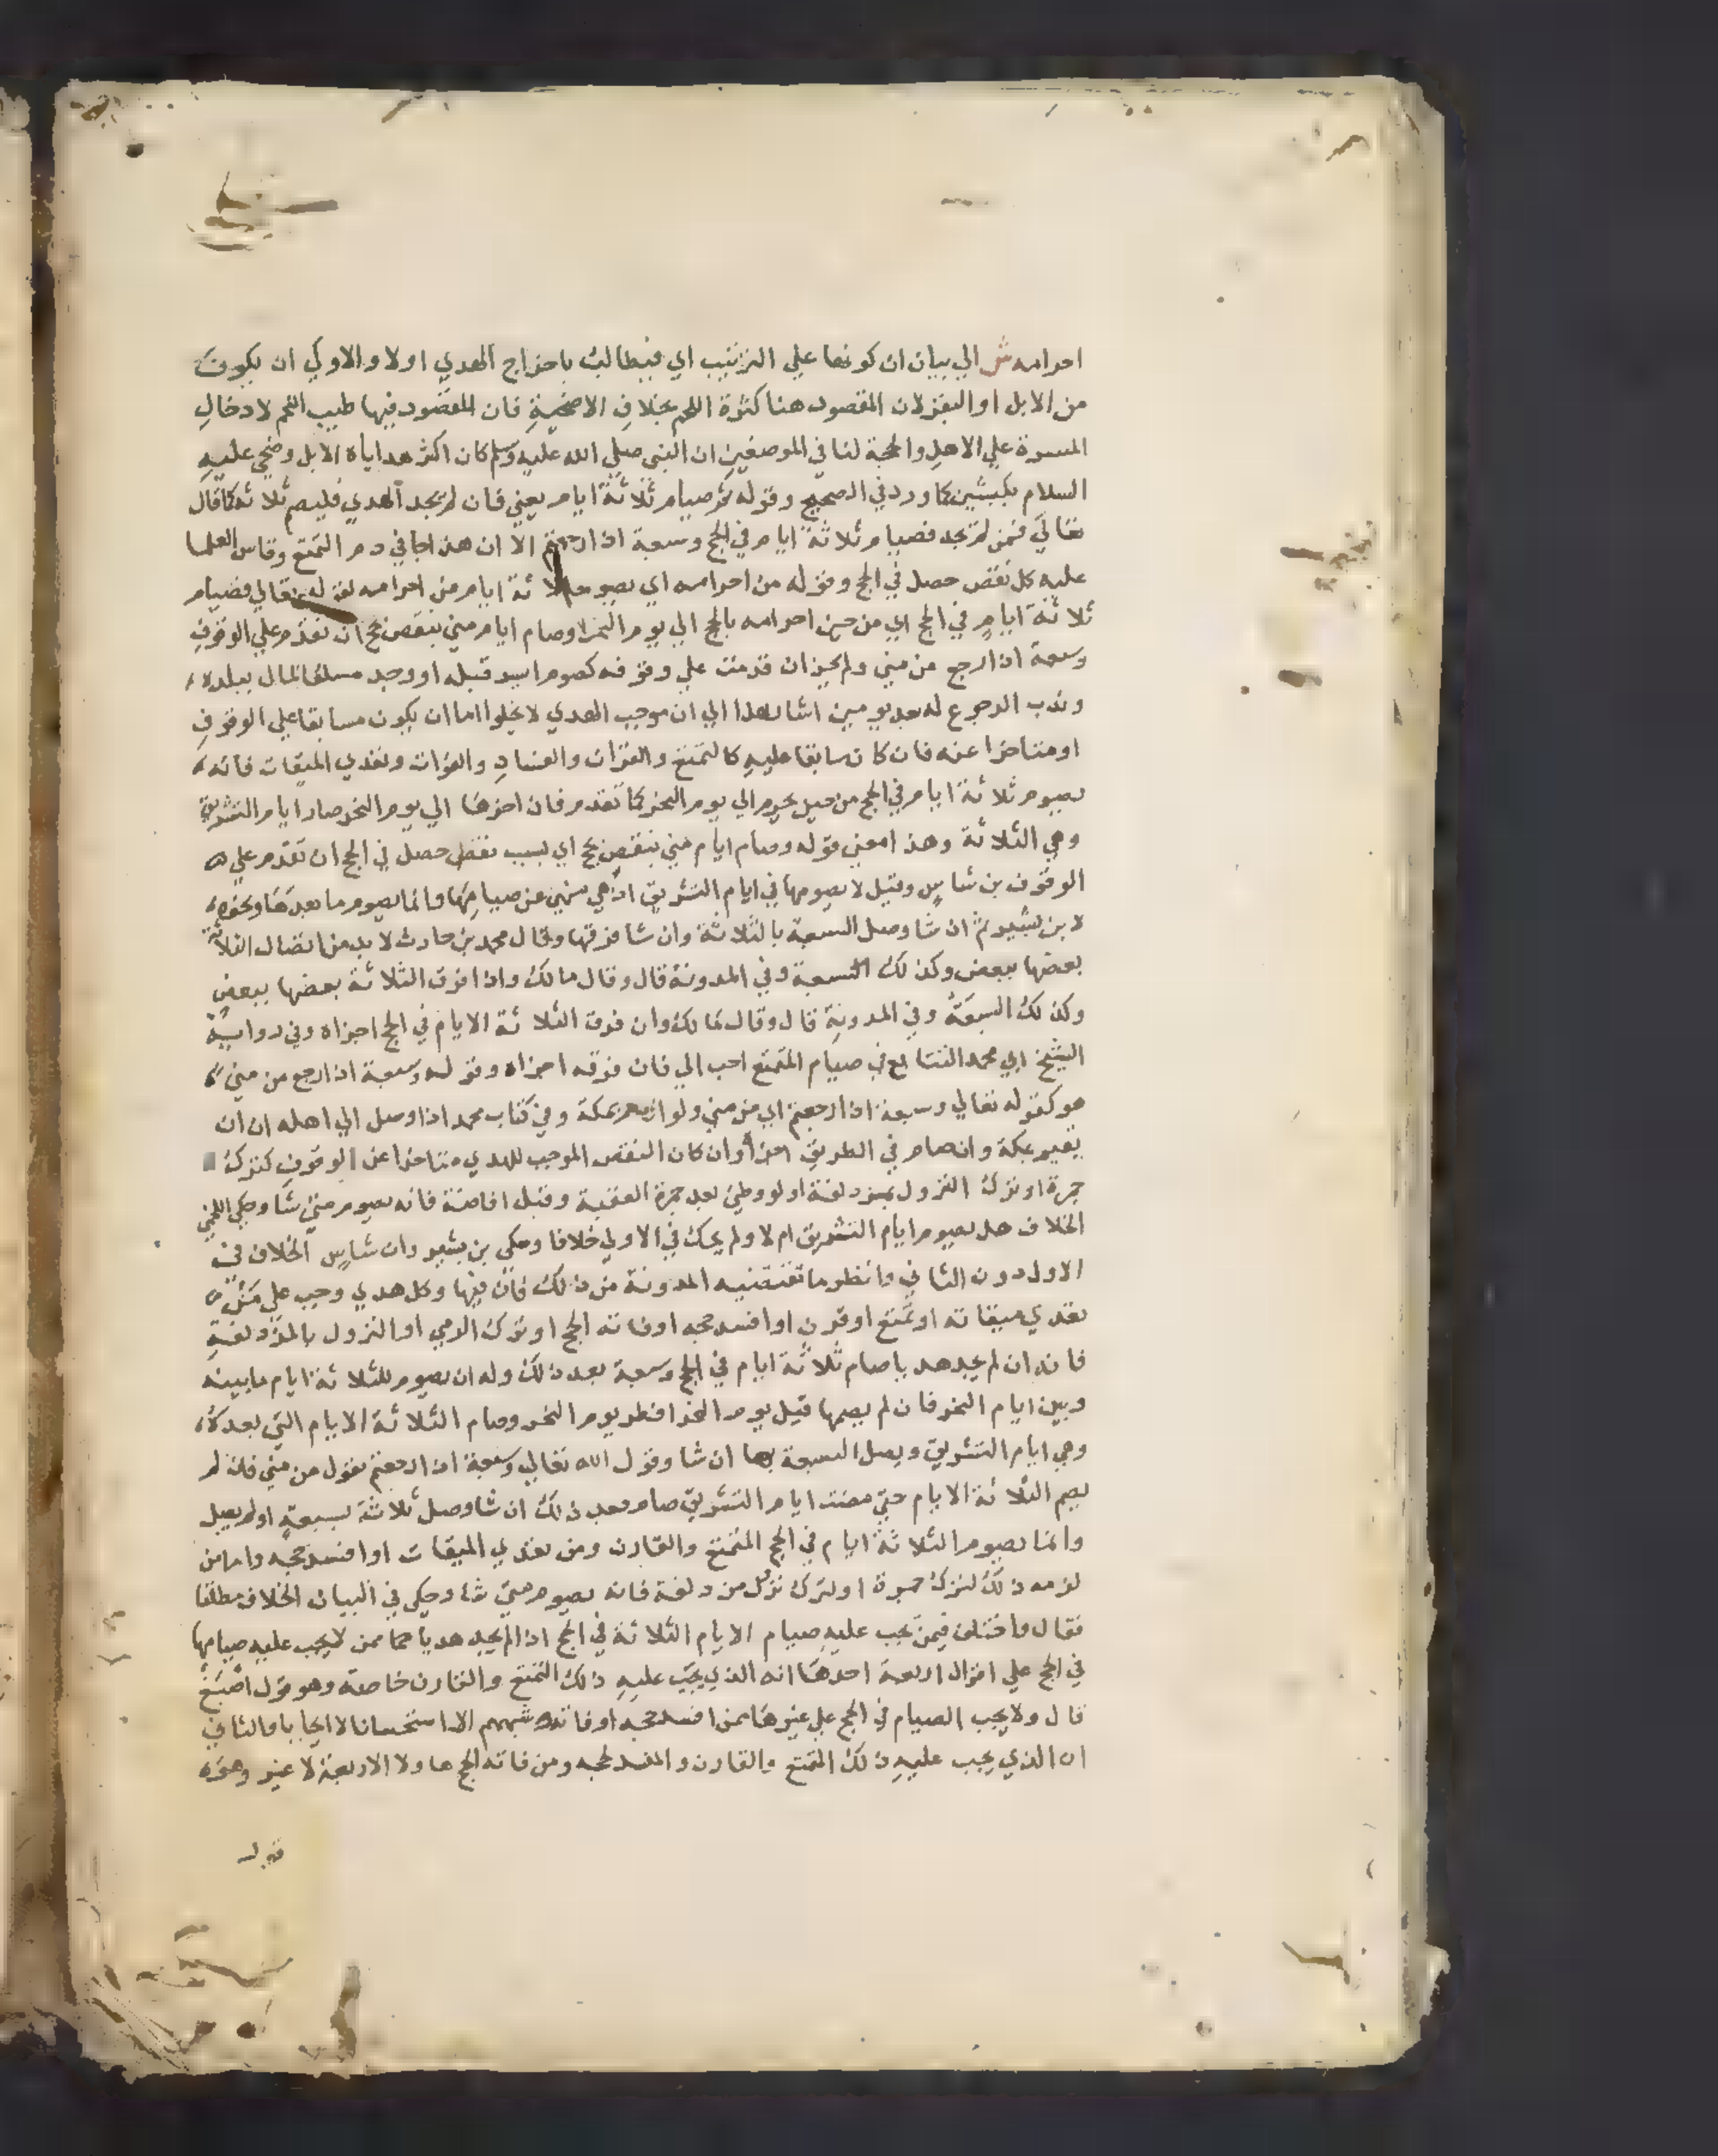 احرامه ش الي بيان ان كونها علي الترتيب اي فيطالب باخراج الهدي اولا والاولي ان يكون
من الابل او البقر لان المقصود هنا كثرة اللحم بخلاف الاضحية فان المقصود فيها طيب اللحم لادخال
المسرة علي الاهل والحجة لنا في الموضعين ان النبي صلي الله عليه وسلم كان اكثر هداياه الابل وضحي عليه
السلام بكبشين كما ورد في الصحيح وقوله ثم صيام ثلاثة ايام يعني فان لم يجد الهدي فليصم ثلاثة كما قال
تعالي فمن لم يجد فصيام ثلاثة ايام في الحج وسبعة اذا رجعتم الا ان هذا جا في دم التمتع وقاس العلما
عليه كل نقص حصل في الحج وقوله من احرامه اي يصوم ثلاثة ايام من احرامه لقوله تعالي فصيام
ثلاثة ايام في الحج اي من حين احرامه بالحج الي يوم النحر ص وصام ايام مني بنقص بحج ان تقدم علي الوقوف
وسبعة اذا رجع من مني ولم تجز ان قدمت علي وقوفه كصوم ايسر قبله او وجد مسلفا لمال ببلده
وندب الرجوع له بعد يومين اشار بهذا الي ان موجب الهدي لا يخلوا اما ان يكون سابقا علي الوقوف
او متاخرا عنه فان كان سابقا عليه كالتمتع والقران والفساد والفوات وتعدي الميقات فانه
يصوم ثلاثة ايام في الحج من حين يحرم الي يوم النحر كما تقدم فان اخرها الي يوم النحر صام ايام التشريق
وهي الثلاثة وهذا معني قوله وصام ايام مني بنقص بحج اي بسبب نقص حصل في الحج ان تقدم علي
الوقوف بن شاس وقيل لا يصومها في ايام التشريق اذ هي منهي عن صيامها وانما يصوم ما بعدها ونحوه
لابن بشير ثم ان شا وصل السبعة بالثلاثة وان شا فرقها وقال محمد بن حارث لا بد من اتصال الثلاثة
بعضها ببعض وكذلك السبعة وفي المدونة قال وقال مالك واذا فرق الثلاثة بعضها ببعض
وكذلك السبعة وفي المدونة قال وقال مالك وان فرق الثلاثة الايام في الحج اجزاه وفي رواية
الشيخ ابي محمد التتابع في صيام المتمتع احب الي فان فرقه اجزاه وقوله وسبعة اذا رجع من مني
هو كقوله تعالي وسبعة اذا رجعتم اي من مني ولو اقام بمكة وفي كتاب محمد اذا وصل الي اهله ان
يقيم بمكة وان صام في الطريق اجزا وان كان النقص الموجب للهدي متاخرا عن الوقوف كترك
جمرة او ترك النزول بمزدلفة او لو وطئ بعد جمرة العقبة وقبل افاضة فانه يصوم متي شا وحكي اللخمي
الخلاف هل يصوم ايام التشريق ام لا ولم يحك في الاولي خلافا وحكي بن بشير وان شاس الخلاف في
الاول دون الثاني وانظر ما تقتضيه المدونة من ذلك فان فيها وكل هدي وجب علي من
تعدي ميقاته او تمتع او قرن او افسد حجه او فاته الحج او ترك الرمي او النزول بالمزدلفة
فانه ان لم يجد هديا صام ثلاثة ايام في الحج وسبعة بعد ذلك وله ان يصوم للثلاثة ايام ما بينه
وبين ايام النحر فان لم يصمها قبل يوم النحر افطر يوم النحر وصام الثلاثة الايام التي بعده
وهي ايام التشريق ويصل السبعة بها ان شا وقول الله تعالي وسبعة اذا رجعتم يقول من مني فان لم
يصم الثلاثة الايام حتي مضت ايام التشريق صام بعد ذلك ان شا وصل ثلاثة بسبعة او لم يصل
وانما يصوم الثلاثة ايام في الحج المتمتع والقارن ومن تعدي الميقات او افسد حجه واما من
لزمه ذلك لترك جمرة او لترك نزل من دلفة فانه يصوم متي شا وحكي في البيان الخلاف مطلقا
فقال واختلف فيمن يجب عليه صيام الايام الثلاثة في الحج اذا لم يجد هديا مما ممن لا يجب عليه صيامها
في الحج علي اقوال اربعة احدها انه الذي يجب عليه ذلك المتمتع والقارن خاصة وهو قول اصبغ
قال ولا يجب الصيام في الحج علي غيرهما ممن افسد حجه او فاته شبههم الا استحسانا لا ايجابا والثاني
ان الذي يجب عليه ذلك المتمتع والقارن والمفسد لحجه ومن فاته الحج هاولا الاربعة لا غير وهو
قول